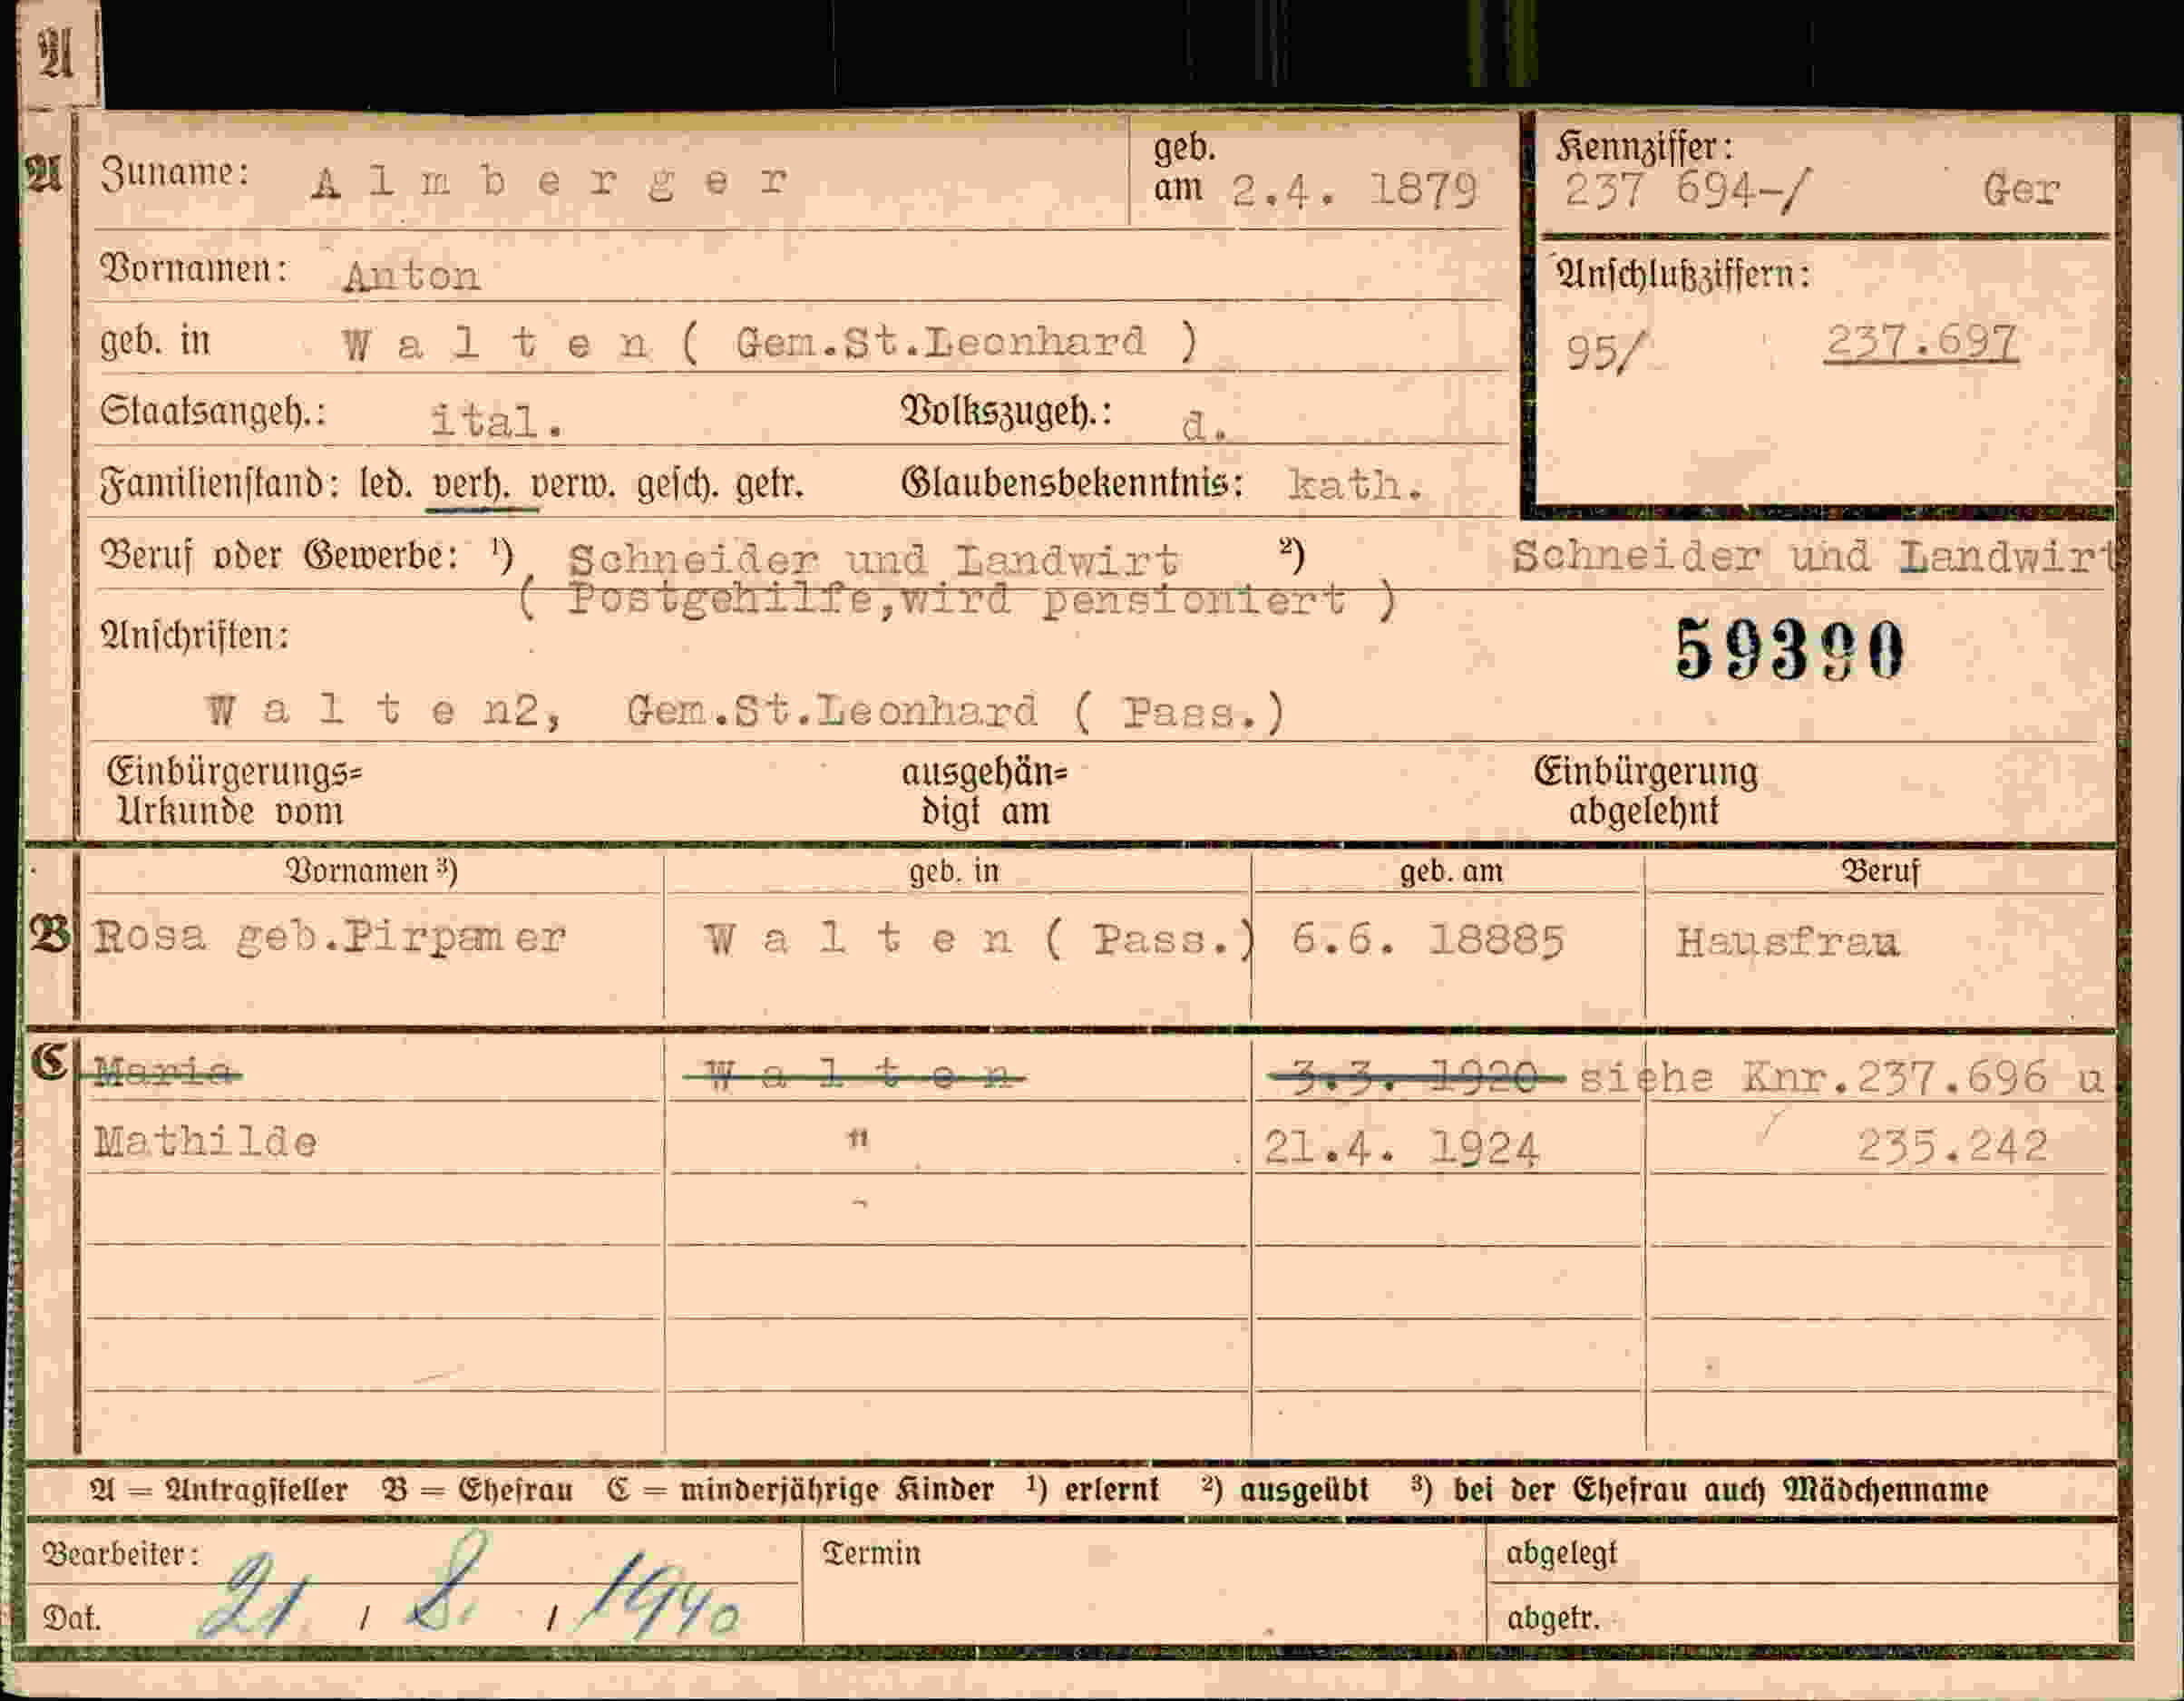 A
A Zuname: A l m b e r g e r geb. am 2.4. 1879
Kennziffer:
237 694-/ Ger
Vornamen: Anton
Anschlußziffern:
geb. in W a l t e n ( Gem.St.Leonhard )
95/ 237.697
Staatsangeh.: ital. Volkszugeh.: d.
Familienstand: led. verh. verw. gesch. getr. Glaubensbekenntnis: kath.
Beruf oder Gewerbe: ¹) Schneider und Landwirt ²) Schneider und Landwirt
( Postgehilfe,wird pensioniert )
Anschriften:
59390
W a l t e n2, Gem.St.Leonhard ( Pass.)
Einbürgerungs= ausgehän= Einbürgerung
Urkunde vom digt am abgelehnt
Vornamen ³) geb. in geb. am Beruf
B Rosa geb.Pirpamer W a l t e n ( Pass.) 6.6. 18885 Hausfrau
C Maria W a l t e n 3.3. 1920 siehe Knr.237.696 u
Mathilde " 21.4. 1924 235.242
A = Antragsteller B = Ehefrau C = minderjährige Kinder ¹) erlernt ²) ausgeübt ³) bei der Ehefrau auch Mädchenname
Bearbeiter: Termin abgelegt
Dat. 21 / 8. / 1940 abgetr.